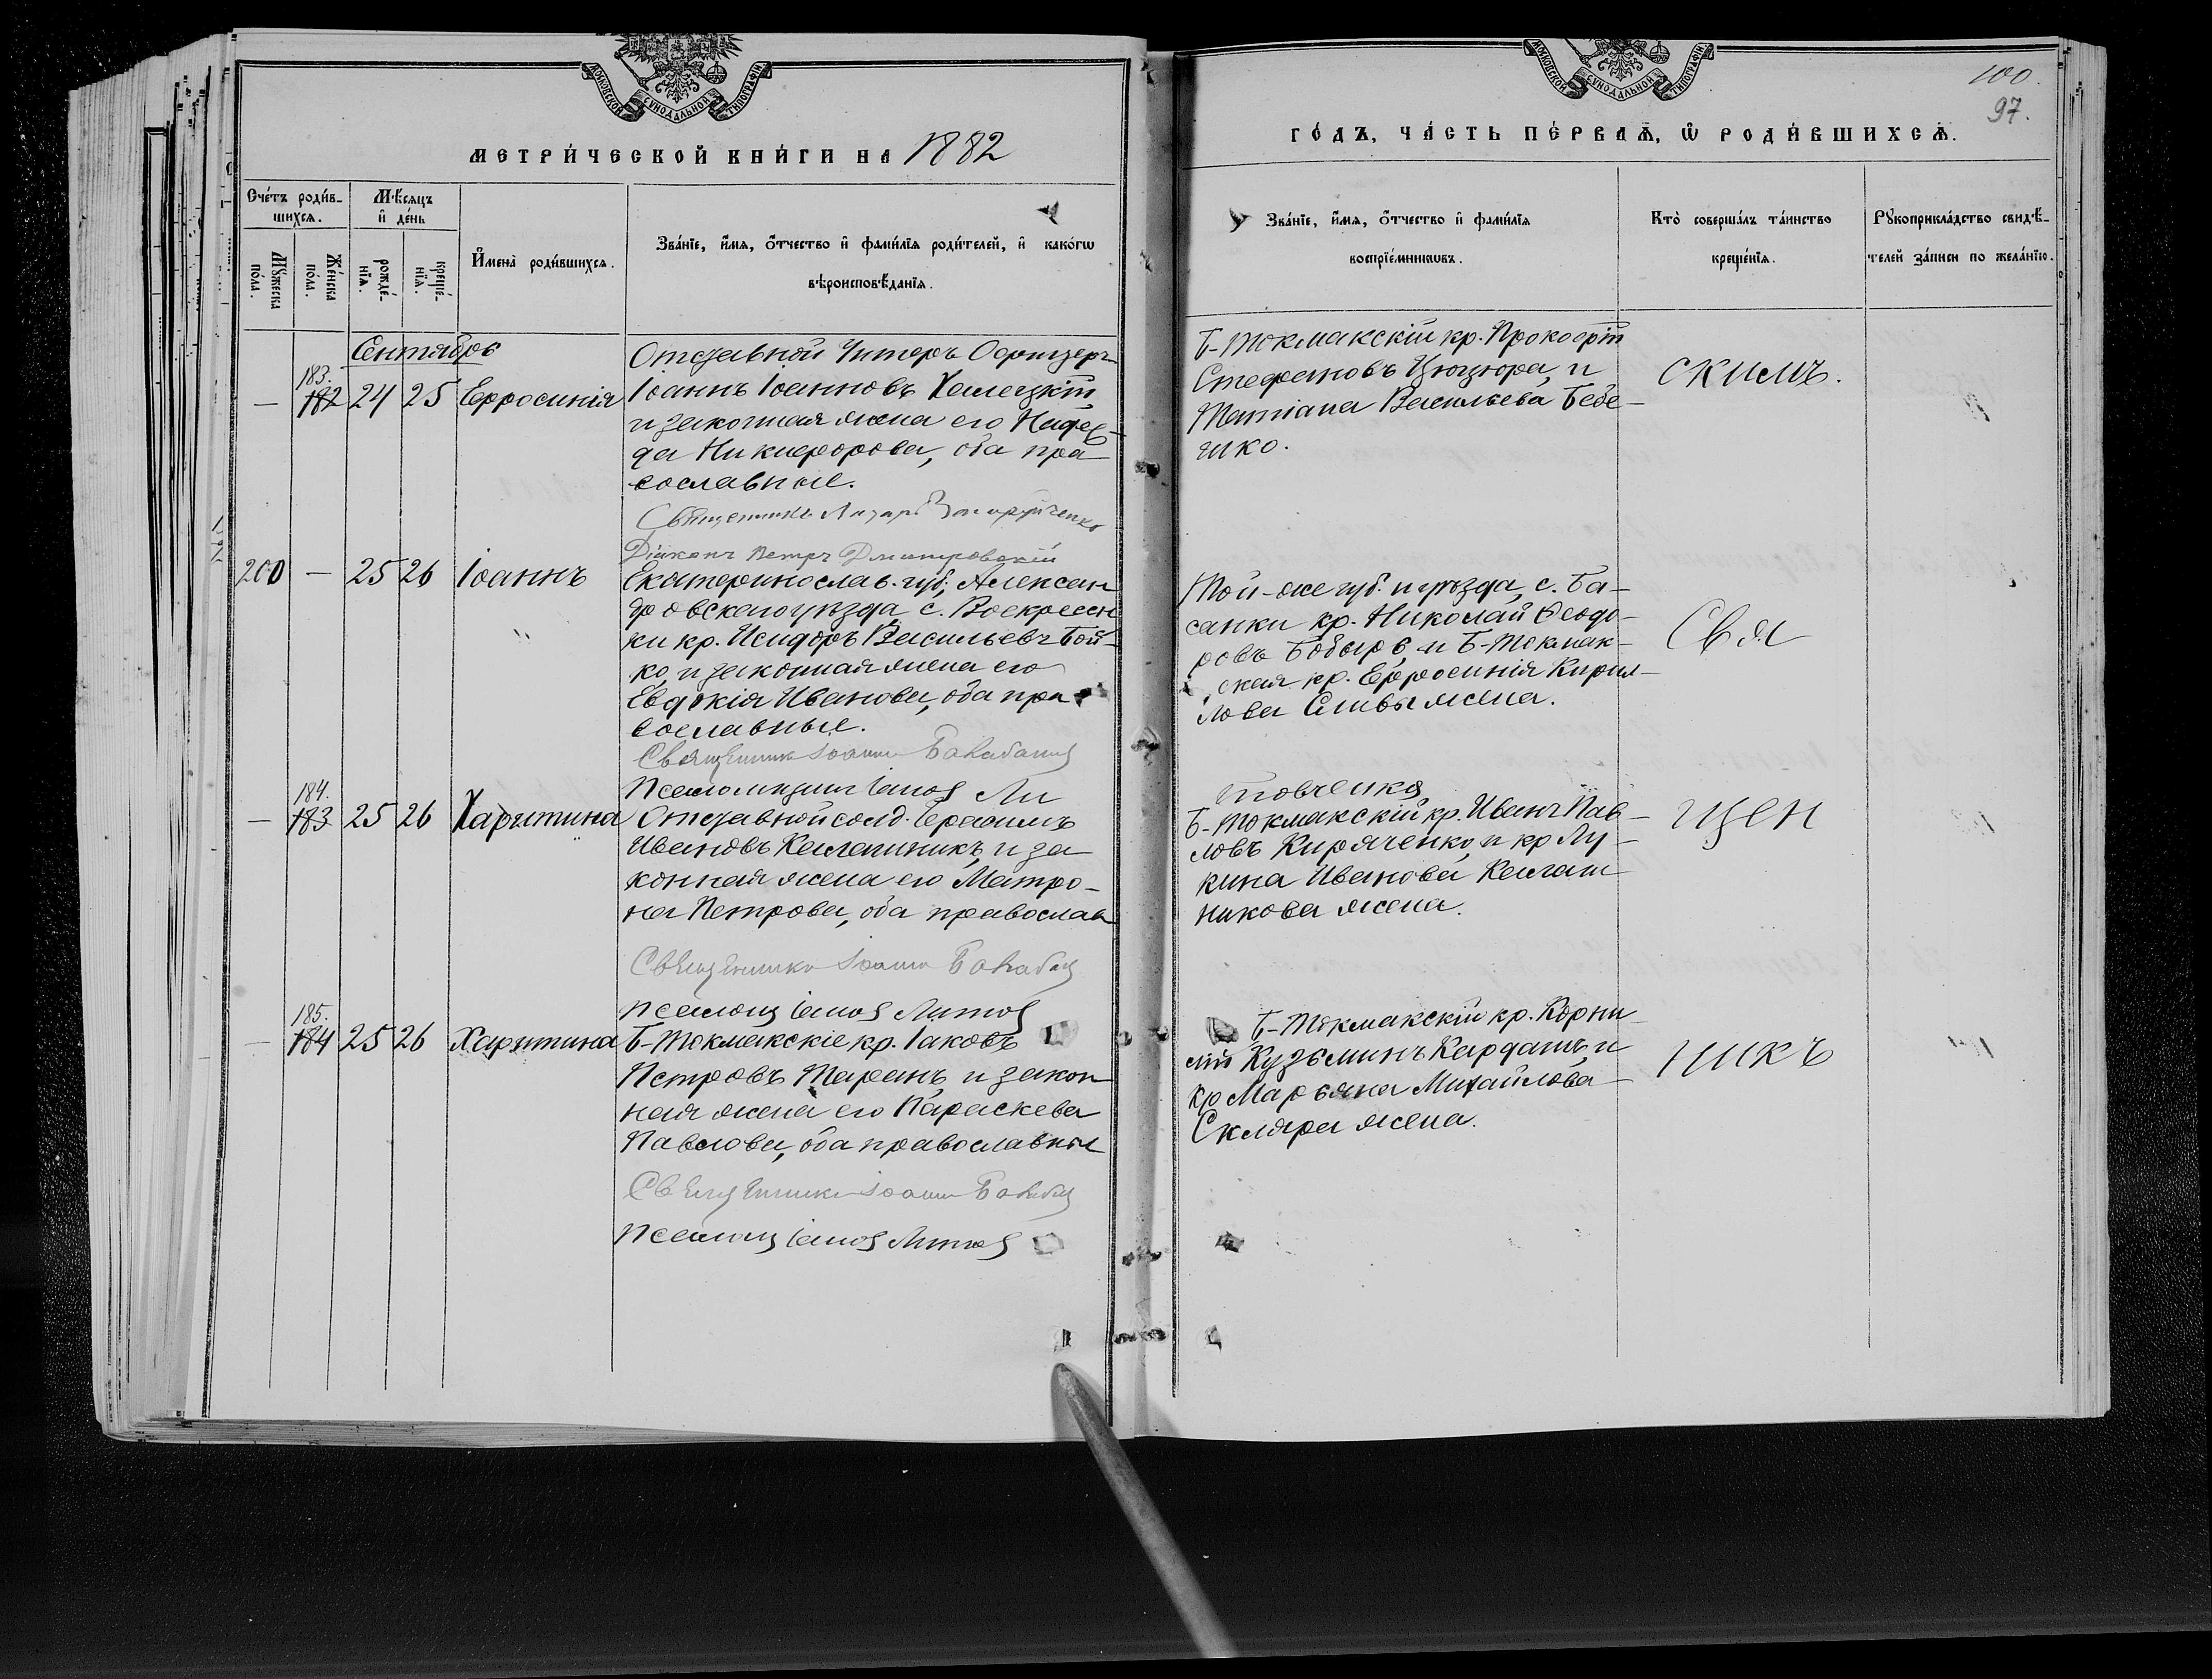 МОСКОВСКОЙ СѴНОДАЛЬНОЙ ТИПОГРАФІИ
МЕТРИ́ЧЕСКОЙ КНИ́ГИ НА 1882
Сче́тъ роди́в-
шихсѧ.
Мѣ́сѧцъ
и҆ де́нь
Мꙋ́жеска
по́ла.
Же́нска
по́ла.
рожде́-
нїѧ.
креще́-
нїѧ.
И҆мена̀ роди́вшихсѧ.
Зва́нїе, и҆́мѧ, ѻ҆́тчество и҆ фами́лїѧ роди́телей, и҆ како́гѡ
вѣроисповѣ́данїѧ.
Сентябрь
— 183. 182 24 25 Ефросинія
Отставной Унтеръ Офицеръ
Іоаннъ Іоанновъ Халецкій
и законная жена его Надеж
да Никифорова, оба пра
вославные.
Священникъ Лазарь
Діаконъ Петръ Дмитровскій
200 — 25 26 Іоаннъ
Екатеринослав. губ., Алексан
дровскаго уѣзда с. Воскресен
ки кр. Исидоръ Васильевъ Бой-
ко, и законная жена его
Евдокія Иванова, оба пра
вославные.
Священникъ Іоаннъ
— 184. 183 25 26 Харитина
Отставной солд. Герасимъ
Ивановъ Калашникъ, и за
конная жена его Матро-
на Петрова, оба православ
Священникъ Іоаннъ
— 185. 184 25 26 Харитина
Б-Токмакскіе кр. Іаковъ
Петровъ Таранъ, и закон
ная жена его Параскева
Павлова, оба православные
Священникъ Іоаннъ
МОСКОВСКОЙ СѴНОДАЛЬНОЙ ТИПОГРАФІИ
100.
97.
ГО́ДЪ, ЧА́СТЬ ПЕ́РВАѦ, Ѡ҆ РОДИ́ВШИХСѦ.
Зва́нїе, и҆́мѧ, ѻ҆́тчество и҆ фами́лїѧ
воспрїе́мникѡвъ.
Кто̀ соверша́лъ та́инство
креще́нїѧ.
Рꙋкоприкла́дство свидѣ́-
телей за́писи по жела́нїю.
Б-Токмакскій кр. Прокофій
Стефановъ Цюцюра, и
Татіана Васильева Беде-
шко.
скимъ.
Той-же губ. и уѣзда, с. Ба-
санки кр. Николай Ѳеодо-
ровъ Бобырь, и Б-Токмак-
ская кр. Ефросинія Кирил-
лова Сливы жена.
Свя
товченко
Б-Токмакскій кр. Иванъ Пав-
ловъ Киряченко, и кр Лу-
кина Иванова Калаш
никова жена.
щен
Б-Токмакскій кр. Корни
лій Кузьминъ Кардашъ, и
кр Марьяна Михайлова
Скляра жена.
никъ